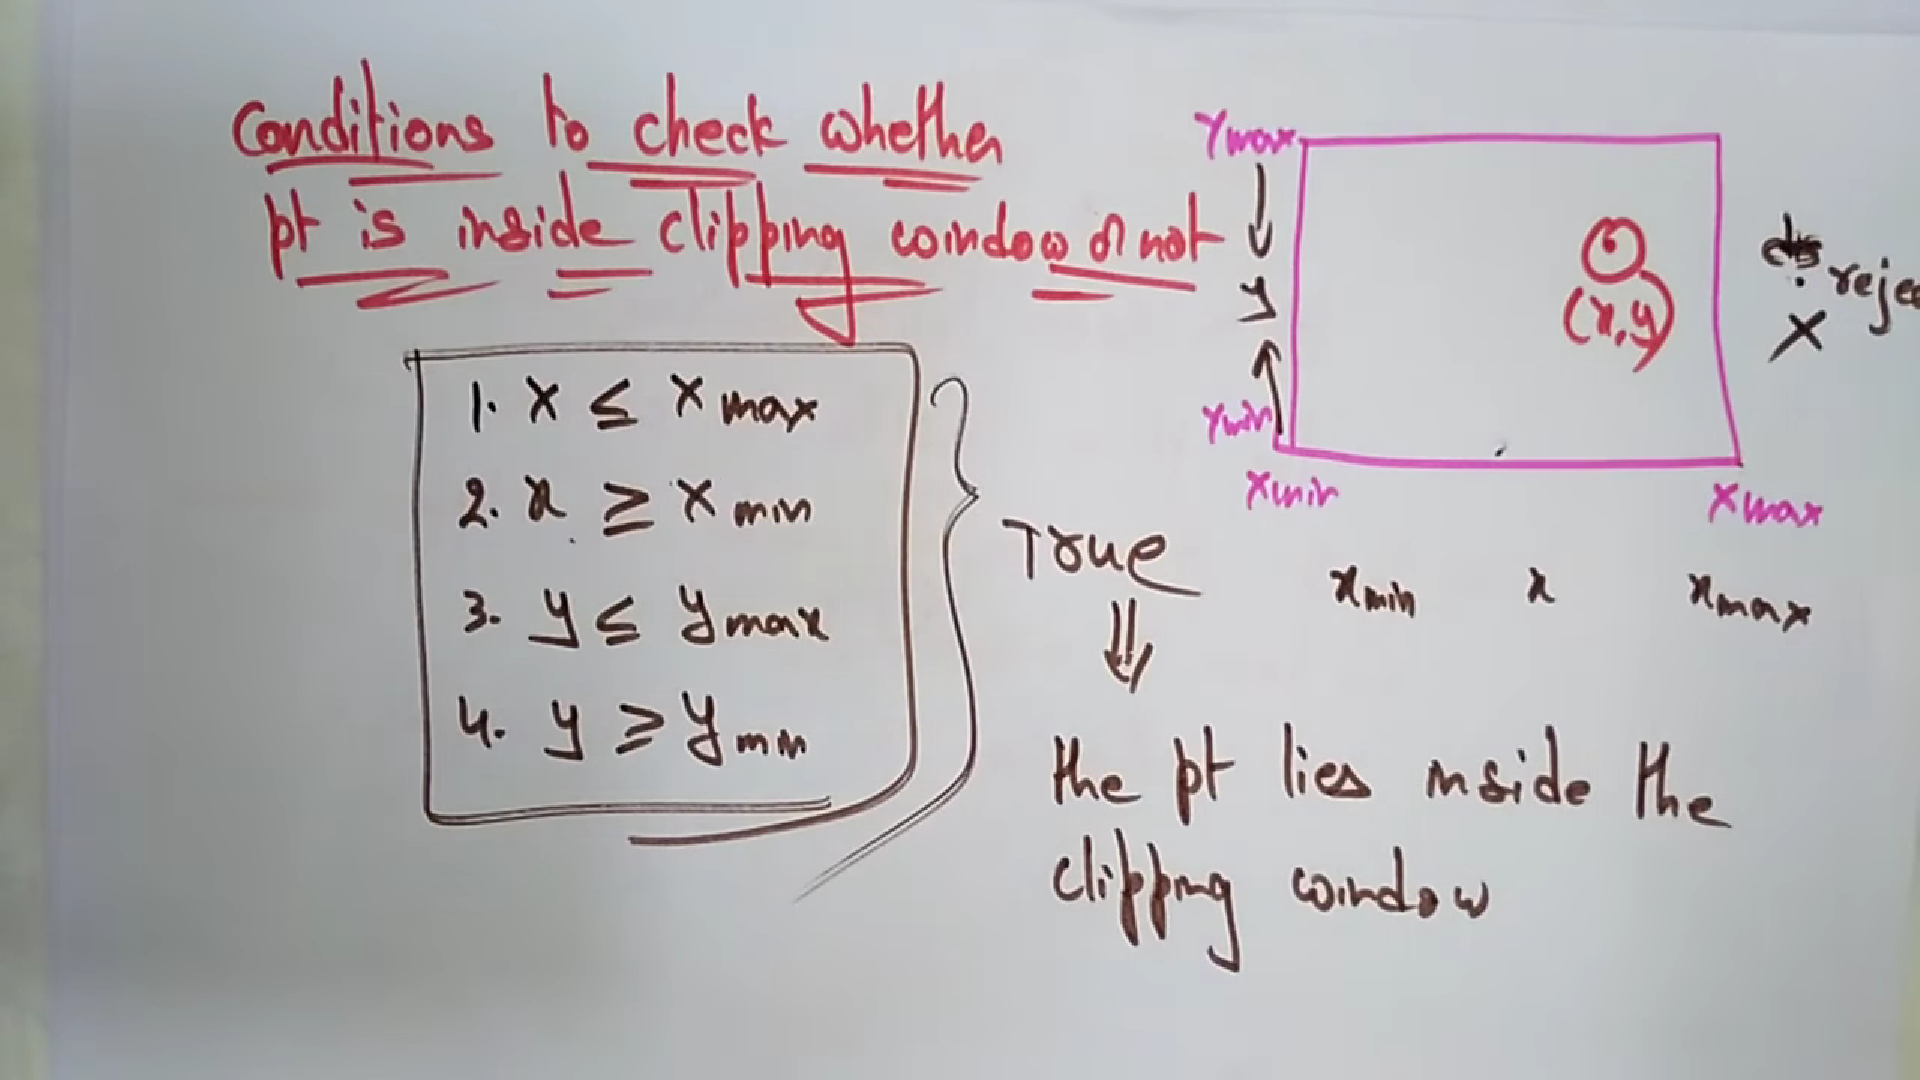 Conditions to check whether
pt is inside clipping window or not
1. x ≤ x max
2. x ≥ x min
3. y ≤ y max
4. y ≥ y min
True
the pt lies inside the
clipping window
Ymax
y
Ymin
Xmin
Xmax
(x,y)
X
xmin x xmax